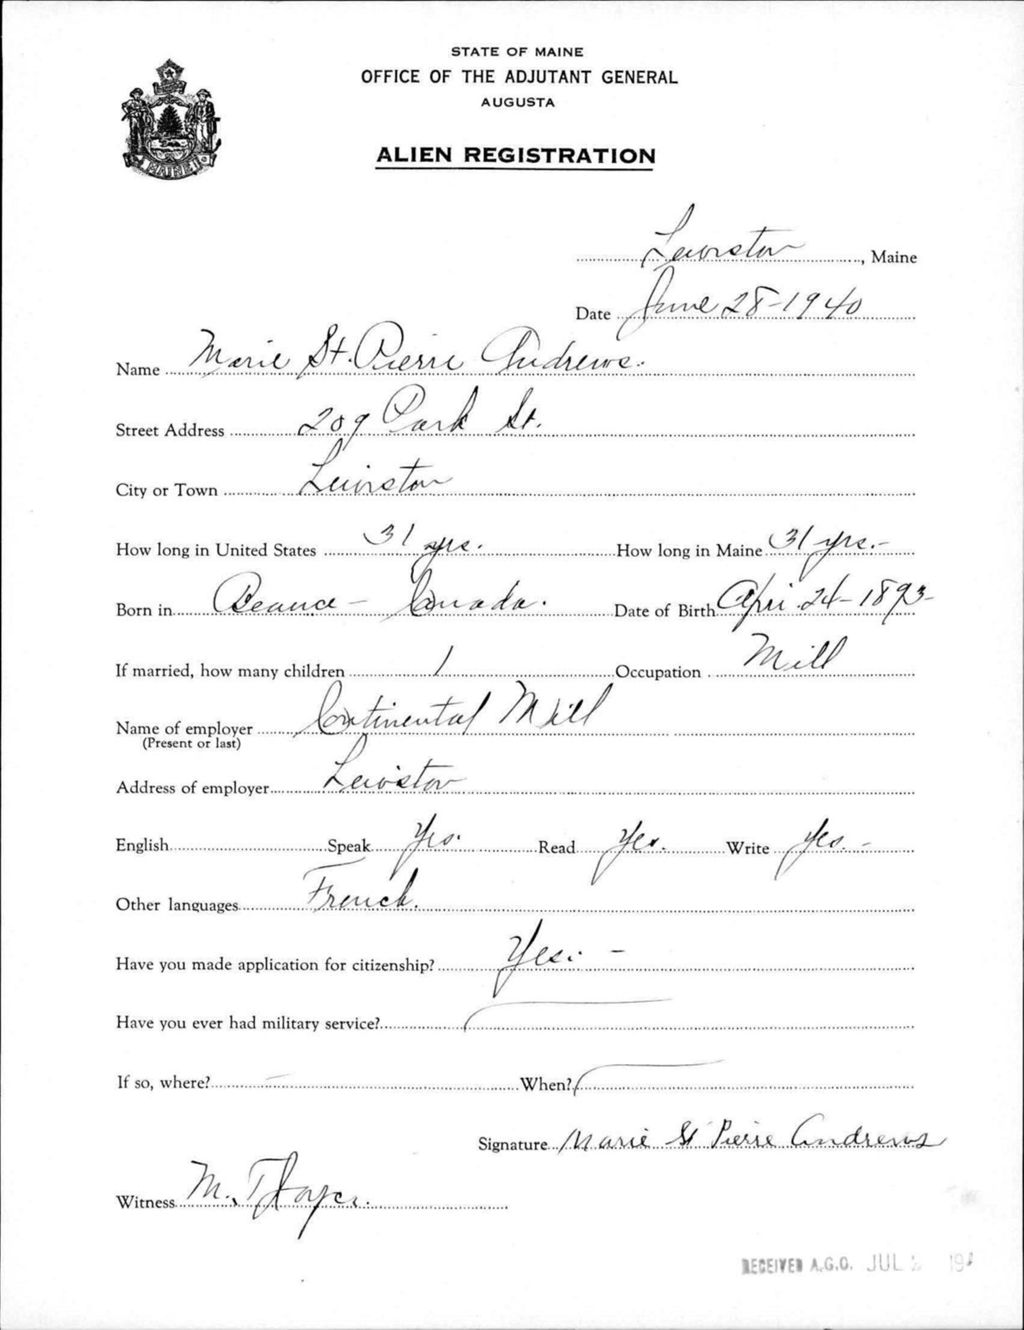 STATE OF MAINE
OFFICE OF THE ADJUTANT GENERAL
AUGUSTA
ALIEN REGISTRATION
MAINE
Lewiston, Maine
Date June 28-1940
Name Marie St. Pierre Andrews.
Street Address 209 Park St.
City or Town Lewiston
How long in United States 31 yrs. How long in Maine 31 yrs.-
Born in Beauce - Canada. Date of Birth Apri 24-1893-
If married, how many children 1 Occupation Mill
Name of employer Continental Mill
(Present or last)
Address of employer Lewiston
English Speak Yes. Read Yes. Write Yes. -
Other languages French.
Have you made application for citizenship? Yes. -
Have you ever had military service?
If so, where? - When?
Signature Marie St Pierre Andrews
Witness M. Thayer.
RECEIVED A.G.O. JUL 194